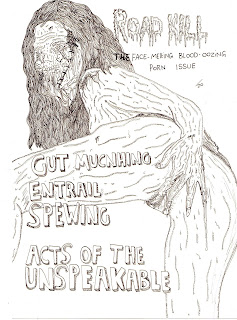 ROAD KILL
THE FACE-MELTING BLOOD-OOZING
PORN ISSUE
GUT MUCNHING
ENTRAIL
SPEWING
ACTS OF THE
UNSPEAKABLE